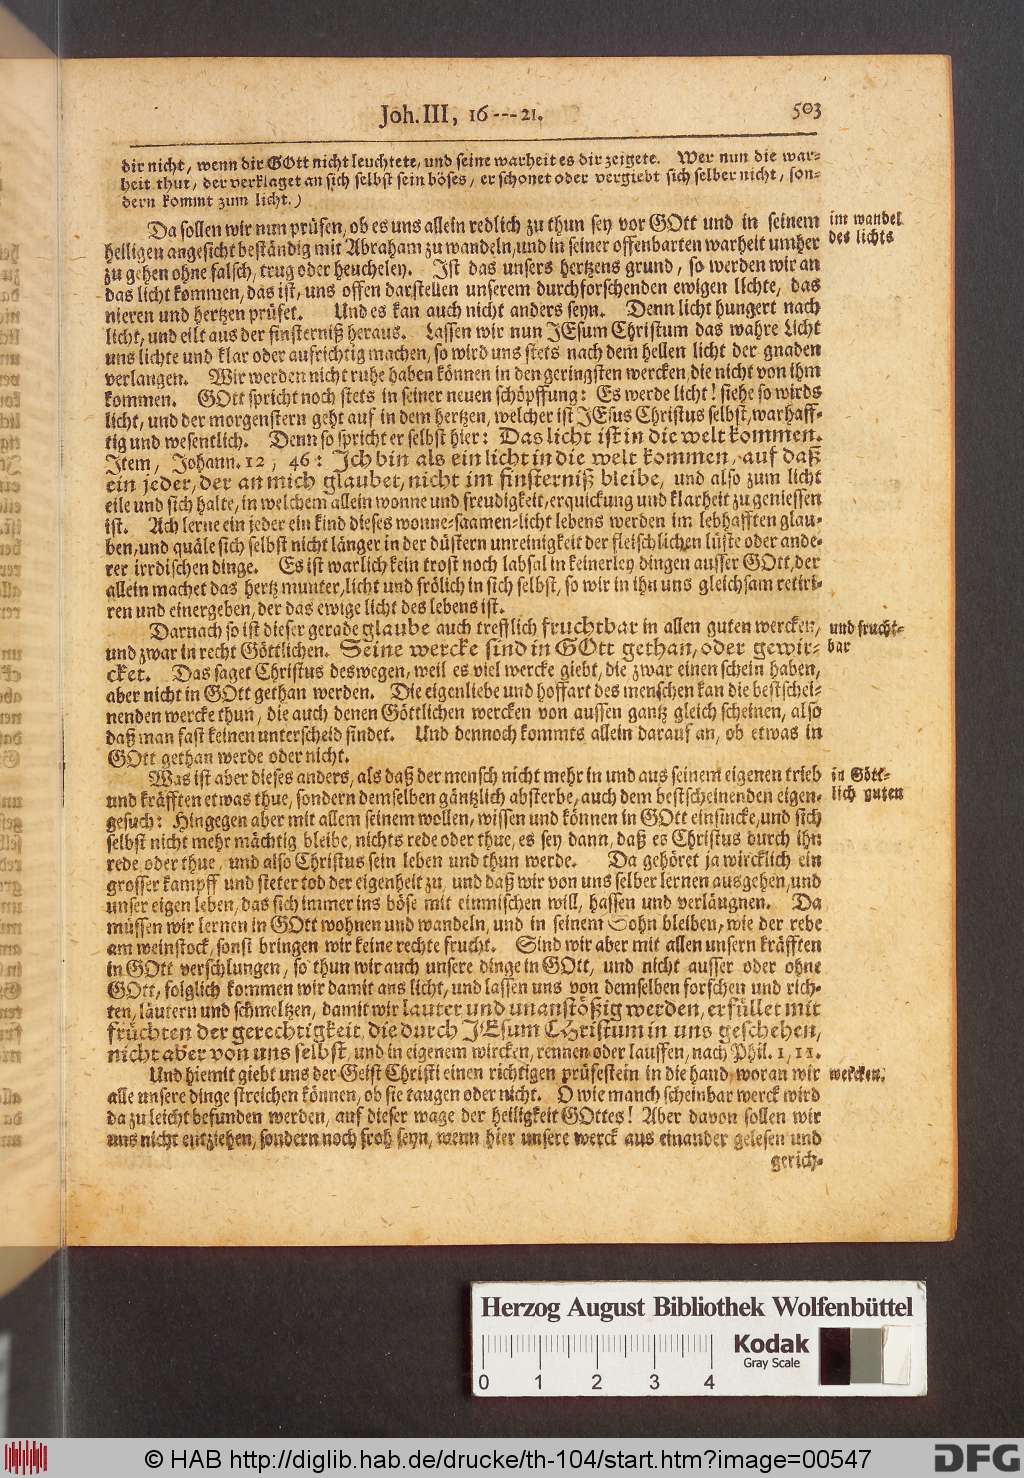 Joh. III, 16---21. 503
dir nicht, wenn dir GOtt nicht leuchtete, und seine warheit es dir zeigete. Wer nun die war-
heit thut, der verklaget an sich selbst sein böses, er schonet oder vergiebt sich selber nicht, son-
dern kommt zum licht.)
Da sollen wir nun prüfen, ob es uns allein redlich zu thun sey vor GOtt und in seinem
im wandel
heiligen angesicht beständig mit Abraham zu wandeln, und in seiner offenbarten warheit umher
des lichts
zu gehen ohne falsch, trug oder heucheley. Ist das unsers hertzens grund, so werden wir an
das licht kommen, das ist, uns offen darstellen unserem durchforschenden ewigen lichte, das
nieren und hertzen prüfet. Und es kan auch nicht anders seyn. Denn licht hungert nach
licht, und eilt aus der finsterniß heraus. Lassen wir nun JEsum Christum das wahre Licht
uns lichte und klar oder aufrichtig machen, so wird uns stets nach dem hellen licht der gnaden
verlangen. Wir werden nicht ruhe haben können in den geringsten wercken, die nicht von ihm
kommen. GOtt spricht noch stets in seiner neuen schöpffung: Es werde licht! siehe so wirds
licht, und der morgenstern geht auf in dem hertzen, welcher ist JEsus Christus selbst, warhaff-
tig und wesentlich. Denn so spricht er selbst hier: Das licht ist in die welt kommen.
Item, Johann. 12, 46: Ich bin als ein licht in die welt kommen, auf daß
ein jeder, der an mich glaubet, nicht im finsterniß bleibe, und also zum licht
eile und sich halte, in welchem allein wonne und freudigkeit, erquickung und klarheit zu geniessen
ist. Ach lerne ein jeder ein kind dieses wonne-saamen-licht lebens werden im lebhafften glau-
ben, und quäle sich selbst nicht länger in der düstern unreinigkeit der fleischlichen lüste oder ande-
rer irrdischen dinge. Es ist warlich kein trost noch labsal in keinerley dingen ausser GOtt, der
allein machet das hertz munter, licht und frölich in sich selbst, so wir in ihn uns gleichsam retiri-
ren und einergeben, der das ewige licht des lebens ist.
Darnach so ist dieser gerade glaube auch trefflich fruchtbar in allen guten wercken,
und frucht-
und zwar in recht Göttlichen. Seine wercke sind in GOtt gethan, oder gewir-
bar
cket. Das saget Christus deswegen, weil es viel wercke giebt, die zwar einen schein haben,
aber nicht in GOtt gethan werden. Die eigenliebe und hoffart des menschen kan die bestschei-
nenden wercke thun, die auch denen Göttlichen wercken von aussen gantz gleich scheinen, also
daß man fast keinen unterscheid findet. Und dennoch kommts allein darauf an, ob etwas in
GOtt gethan werde oder nicht.
Was ist aber dieses anders, als daß der mensch nicht mehr in und aus seinem eigenen trieb
in Gött-
und kräfften etwas thue, sondern demselben gäntzlich absterbe, auch dem bestscheinenden eigen-
lich guten
gesuch: Hingegen aber mit allem seinem wollen, wissen und können in GOtt einsincke, und sich
selbst nicht mehr mächtig bleibe, nichts rede oder thue, es sey dann, daß es Christus durch ihn
rede oder thue, und also Christus sein leben und thun werde. Da gehöret ja wircklich ein
grosser kampff und steter tod der eigenheit zu, und daß wir von uns selber lernen ausgehen, und
unser eigen leben, das sich immer ins böse mit einmischen will, hassen und verläugnen. Da
müssen wir lernen in GOtt wohnen und wandeln, und in seinem Sohn bleiben, wie der rebe
am weinstock, sonst bringen wir keine rechte frucht. Sind wir aber mit allen unsern kräfften
in GOtt verschlungen, so thun wir auch unsere dinge in GOtt, und nicht ausser oder ohne
GOtt, folglich kommen wir damit ans licht, und lassen uns von demselben forschen und rich-
ten, läutern und schmeltzen, damit wir lauter und unanstößig werden, erfüllet mit
früchten der gerechtigkeit, die durch JEsum CHristum in uns geschehen,
nicht aber von uns selbst, und in eigenem wircken, rennen oder lauffen, nach Phil. 1, 11.
Und hiemit giebt uns der Geist Christi einen richtigen prüfestein in die hand, woran wir
wercken.
alle unsere dinge streichen können, ob sie taugen oder nicht. O wie manch scheinbar werck wird
da zu leicht befunden werden, auf dieser wage der heiligkeit GOttes! Aber davon sollen wir
uns nicht entziehen, sondern noch froh seyn, wenn hier unsere werck aus einander gelesen und
gerich-
Herzog August Bibliothek Wolfenbüttel
Kodak
Gray Scale
0 1 2 3 4
© HAB http://diglib.hab.de/drucke/th-104/start.htm?image=00547
DFG